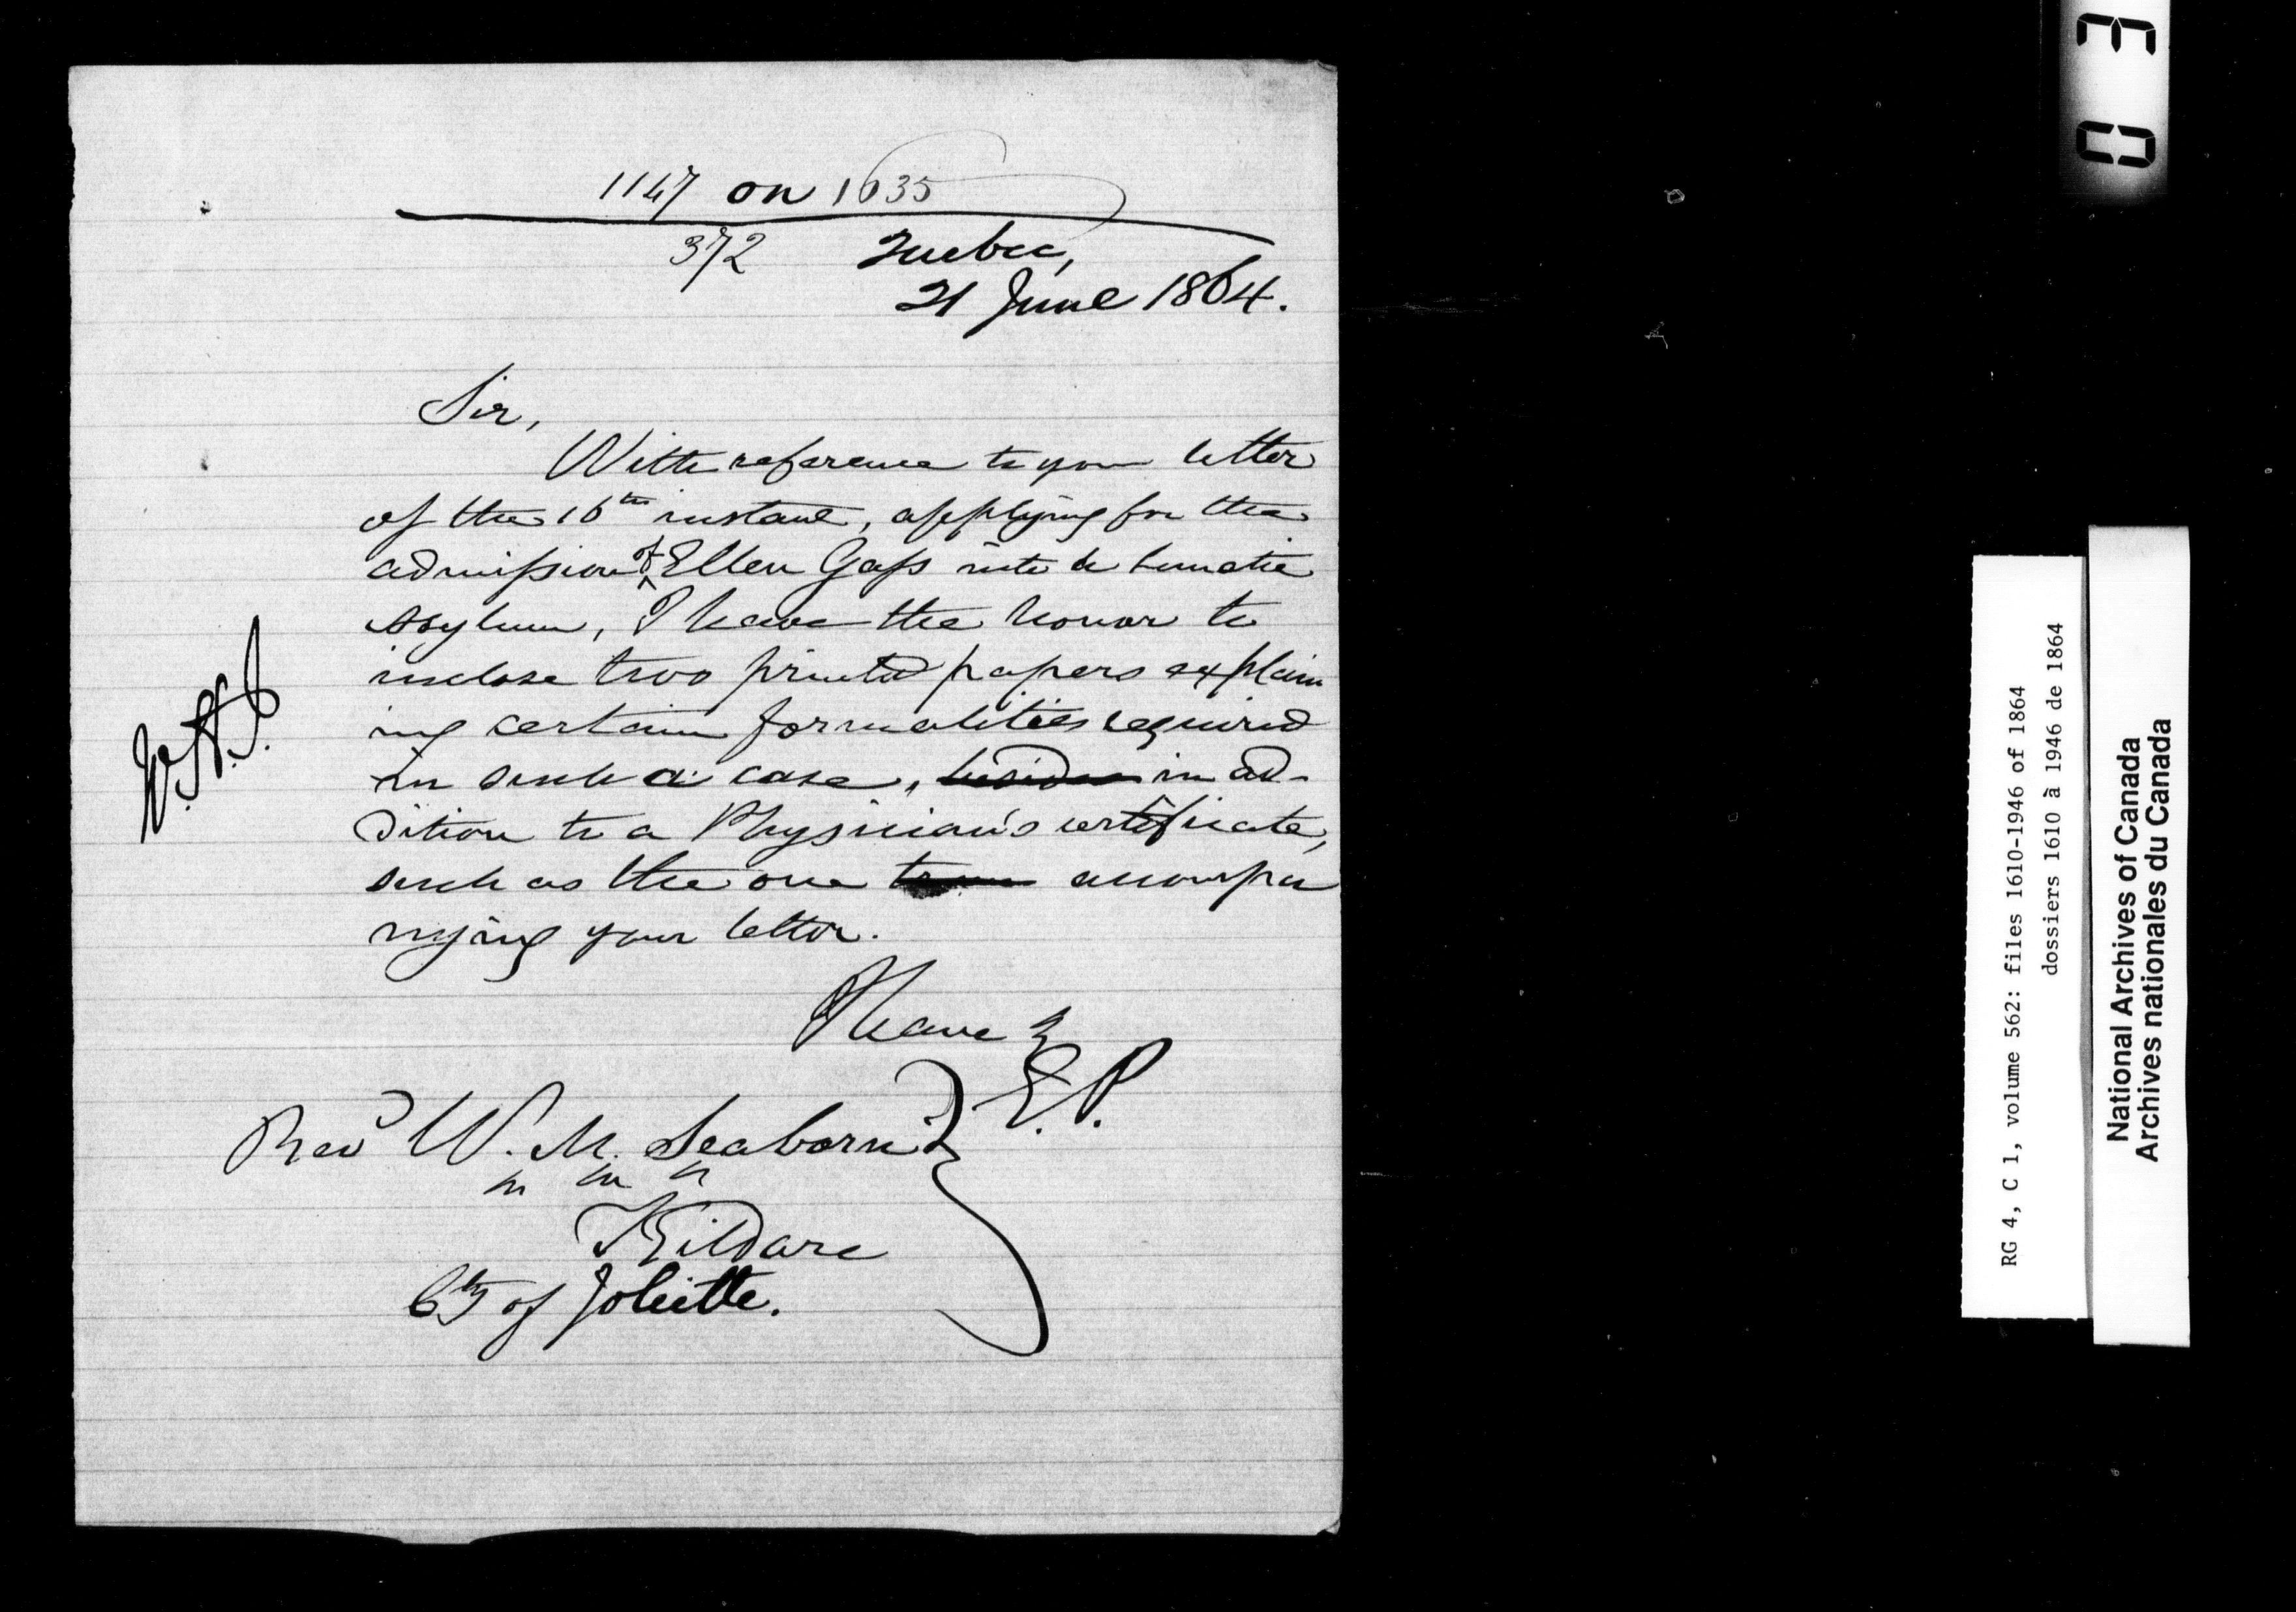 1147 on 1635
372 Quebec,
21 June 1864.
Sir,
With reference to your letter
of the 16th instant, applying for the
admission of Ellen Gass into a Lunatic
Asylum, I have the honor to
inclose two printed papers explain
ing certain formalities required
in such a case, besides in ad-
dition to a Physician's certificate,
such as the one accompa
nying your letter.
I have &
E. P.
Revd W. M. Seaborn
Kildare
Cty of Joliette.
03
RG 4, C 1, volume 562: files 1610-1946 of 1864
dossiers 1610 à 1946 de 1864
National Archives of Canada
Archives nationales du Canada